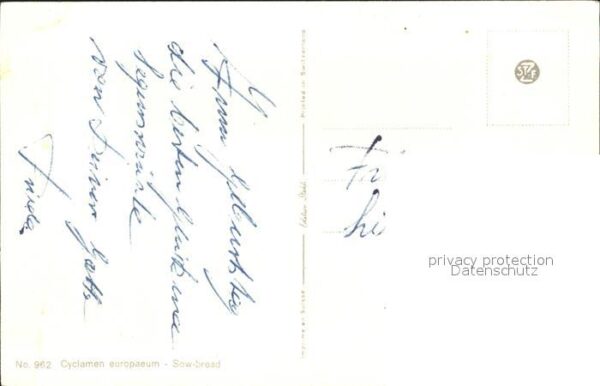 Zum Geburtstag
die besten Glück und
Segenswünsche
von
Frieda
Printed in Switzerland
Imprimé en Suisse
Fr
hi
privacy protection
Datenschutz
No. 962 Cyclamen europaeum - Sow-bread